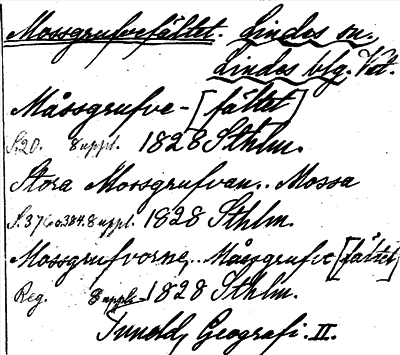 Mossgrufvefältet. Lindes sn.
Lindes blg. Vst.
Måssgrufve-[fältet]
S. 20. 8 uppl. 1828 Sthlm.
Stora Mossgrufvan.. Mossa
S. 376 o. 384. 8 uppl. 1828 Sthlm.
Mossgrufvorne.. Måssgrufve [fältet]
Reg. 8 uppl. 1828 Sthlm.
Tuneld, Geografi. II.